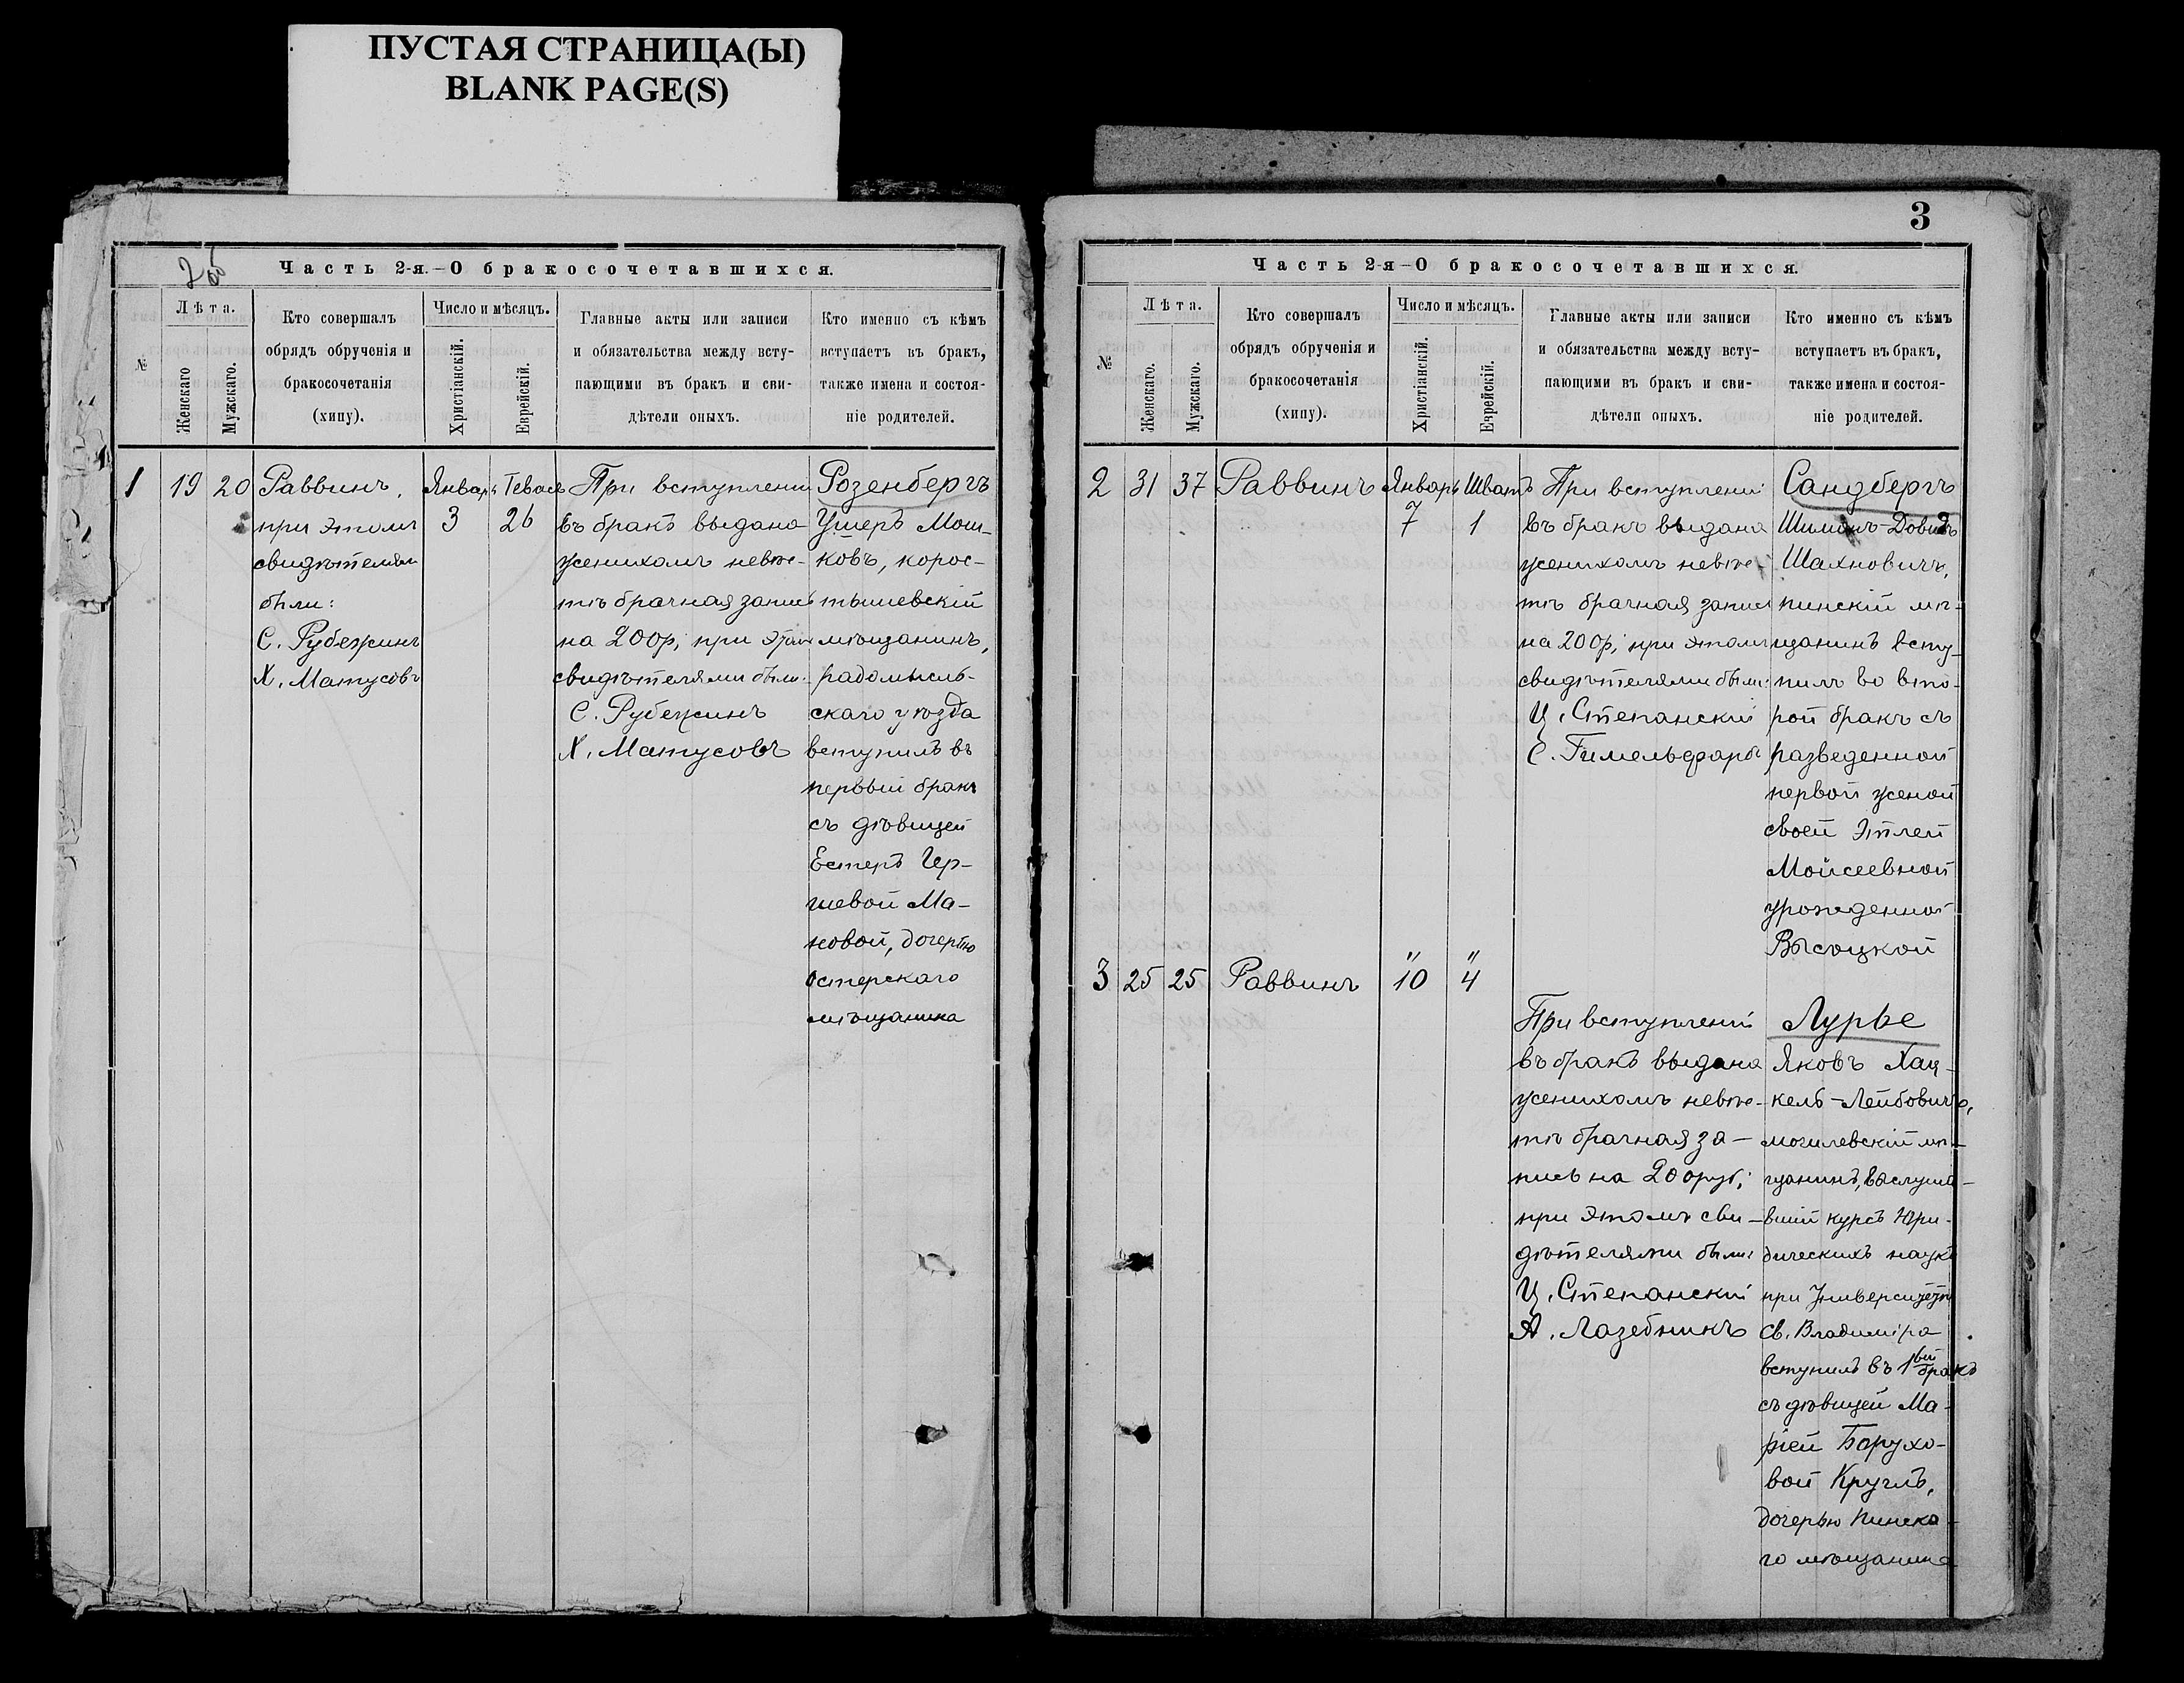 ПУСТАЯ СТРАНИЦА(Ы)
BLANK PAGE(S)
Часть 2-я.—О бракосочетавшихся.
№
Лѣта.
Женскаго
Мужскаго.
Кто совершалъ
обрядъ обрученія и
бракосочетанія
(хипу).
Число и мѣсяцъ.
Христіанскій.
Еврейскій.
Главные акты или записи
и обязательства между всту-
пающими въ бракъ и сви-
дѣтели оныхъ.
Кто именно съ кѣмъ
вступаетъ въ бракъ,
также имена и состоя-
ніе родителей.
1
19
20
Раввинъ,
при этомъ
свидѣтелями
были:
С. Рубежинъ
Х. Матусовъ
Январь
3
Теваѳъ
26
При вступленіи
въ бракъ выдана
женихомъ невѣс-
тѣ брачная запись
на 200р; при этомъ
свидѣтелями были:
С. Рубежинъ
Х. Матусовъ
Розенбергъ
Ушеръ Мош-
ковъ, корос-
тышевскій
мѣщанинъ,
радомысль-
скаго уѣзда
вступилъ въ
первый бракъ
съ дѣвицей
Естеръ Гер-
шевой Ма-
новой, дочерью
Остерскаго
мѣщанина
3
Часть 2-я—О бракосочетавшихся.
№
Лѣта.
Женскаго.
Мужскаго.
Кто совершалъ
обрядъ обрученія и
бракосочетанія
(хипу).
Число и мѣсяцъ.
Христіанскій.
Еврейскій.
Главные акты или записи
и обязательства между всту-
пающими въ бракъ и сви-
дѣтели оныхъ.
Кто именно съ кѣмъ
вступаетъ въ бракъ,
также имена и состоя-
ніе родителей.
2
31
37
Раввинъ
Январь
7
Шватъ
1
При вступленіи
въ бракъ выдана
женихомъ невѣс-
тѣ брачная запись
на 200р; при этомъ
свидѣтелями были:
Ц. Степанскій
С. Гимельфарбъ
Сандбергъ
Шимонъ-Довидъ
Шахновичъ,
пинскій мѣ-
щанинъ всту-
пилъ во вто-
рой бракъ съ
разведенной
первой женой
своей Этлей
Мойсеевной
урожденной
Высоцкой
3
25
25
Раввинъ
"
10
"
4
При вступленіи
въ бракъ выдана
женихомъ невѣс-
тѣ брачная за-
пись на 200руб;
при этомъ сви-
дѣтелями были:
Ц. Степанскій
А. Лазебникъ
Лурье
Яковъ Хац-
кель-Лейбовичъ,
могилевскій мѣ-
щанинъ, выслуша-
вшій курсъ Юри-
дическихъ наукъ
при Университетѣ
Св. Владиміра
вступилъ въ 1вый бракъ
съ дѣвицей Ма-
ріей Борухо-
вой Кругль,
дочерью пинска-
го мѣщанина